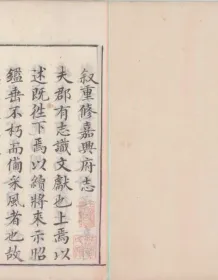 叙重修嘉興府志
夫郡有志識文獻也上焉以
述既徃下焉以續將來示昭
鑑垂不朽而備采風者也故